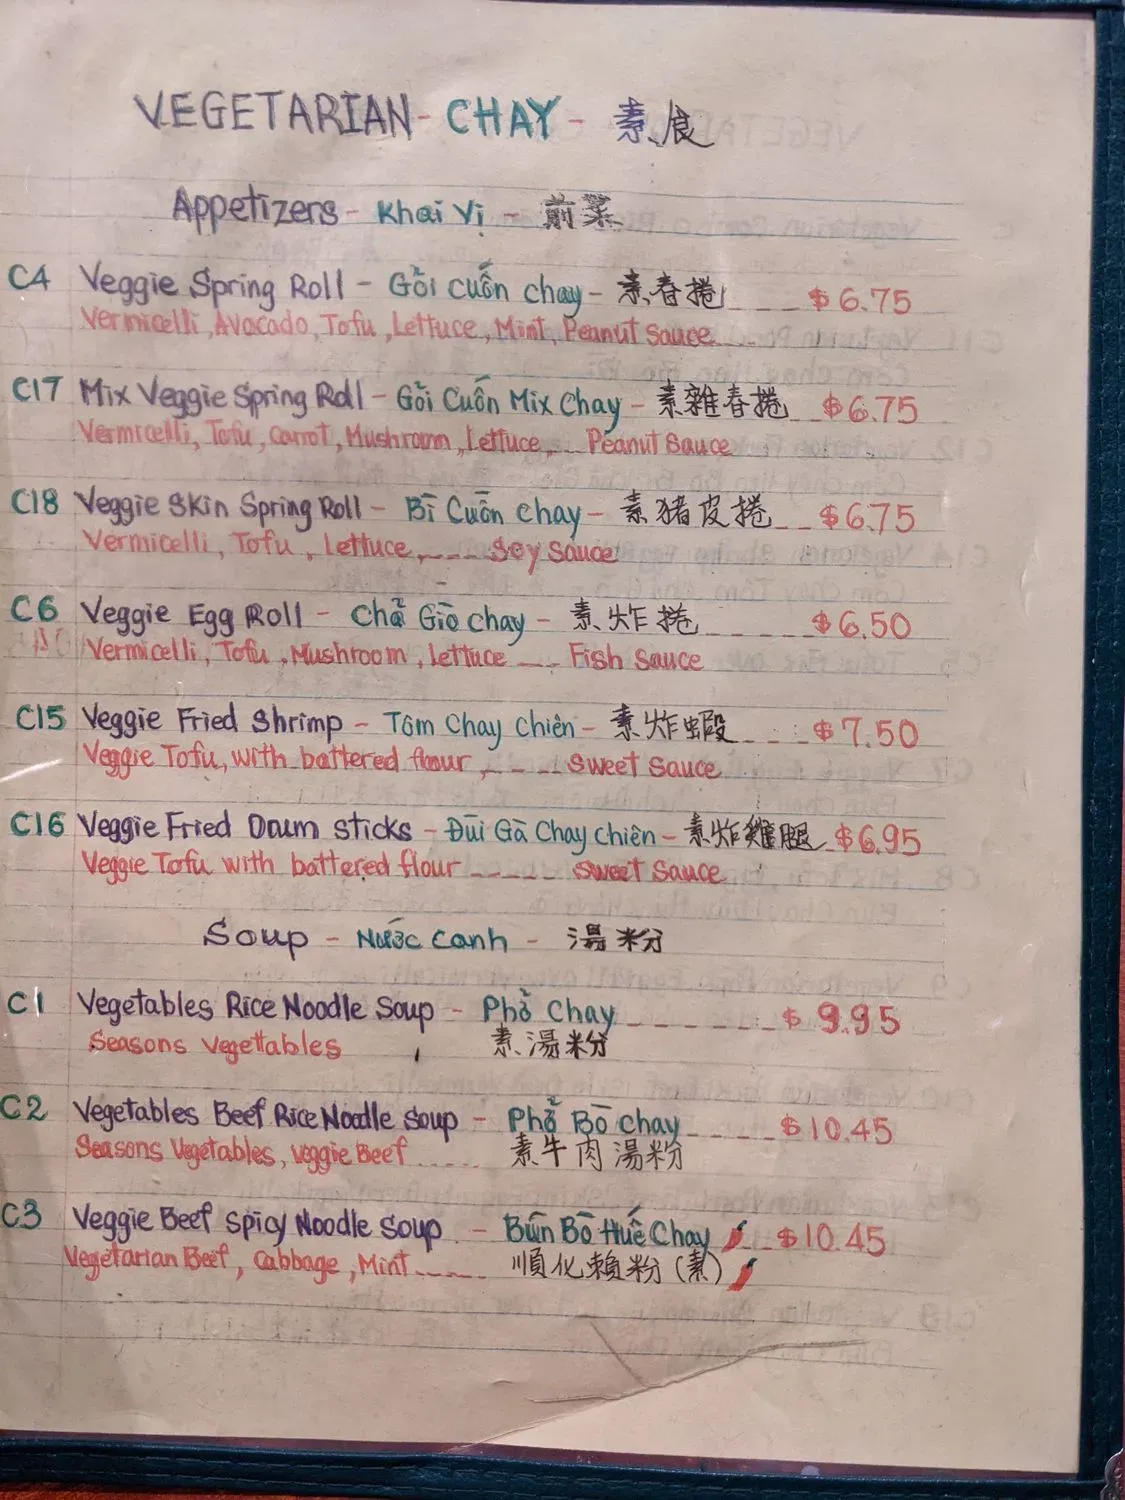 VEGETARIAN - CHAY - 素食
Appetizers - Khai Vị - 前菜
C4 Veggie Spring Roll - Gỏi Cuốn chay - 素春捲 ____ $6.75
Vermicelli, Avocado, Tofu, Lettuce, Mint, Peanut Sauce
C17 Mix Veggie Spring Roll - Gỏi Cuốn Mix Chay - 素雜春捲 $6.75
Vermicelli, Tofu, Carrot, Mushroom, Lettuce, __ Peanut Sauce
C18 Veggie Skin Spring Roll - Bì Cuốn chay - 素豬皮捲 __ $6.75
Vermicelli, Tofu, Lettuce, ____ Soy Sauce
C6 Veggie Egg Roll - Chả Giò chay - 素炸捲 _____ $6.50
Vermicelli, Tofu, Mushroom, Lettuce ___ Fish Sauce
C15 Veggie Fried Shrimp - Tôm Chay Chiên - 素炸蝦 ____ $7.50
Veggie Tofu, with battered flour, ____ Sweet Sauce
C16 Veggie Fried Drum Sticks - Đùi Gà Chay Chiên - 素炸雞腿 $6.95
Veggie Tofu with battered flour _____ Sweet Sauce
Soup - Nước Canh - 湯粉
C1 Vegetables Rice Noodle Soup - Phở Chay ______ $9.95
Seasons Vegettables 素湯粉
C2 Vegetables Beef Rice Noodle Soup - Phở Bò chay ____ $10.45
Seasons Vegetables, Veggie Beef _____ 素牛肉湯粉
C3 Veggie Beef Spicy Noodle Soup - Bún Bò Huế Chay __ $10.45
Vegetarian Beef, Cabbage, Mint _____ 順化賴粉(素)